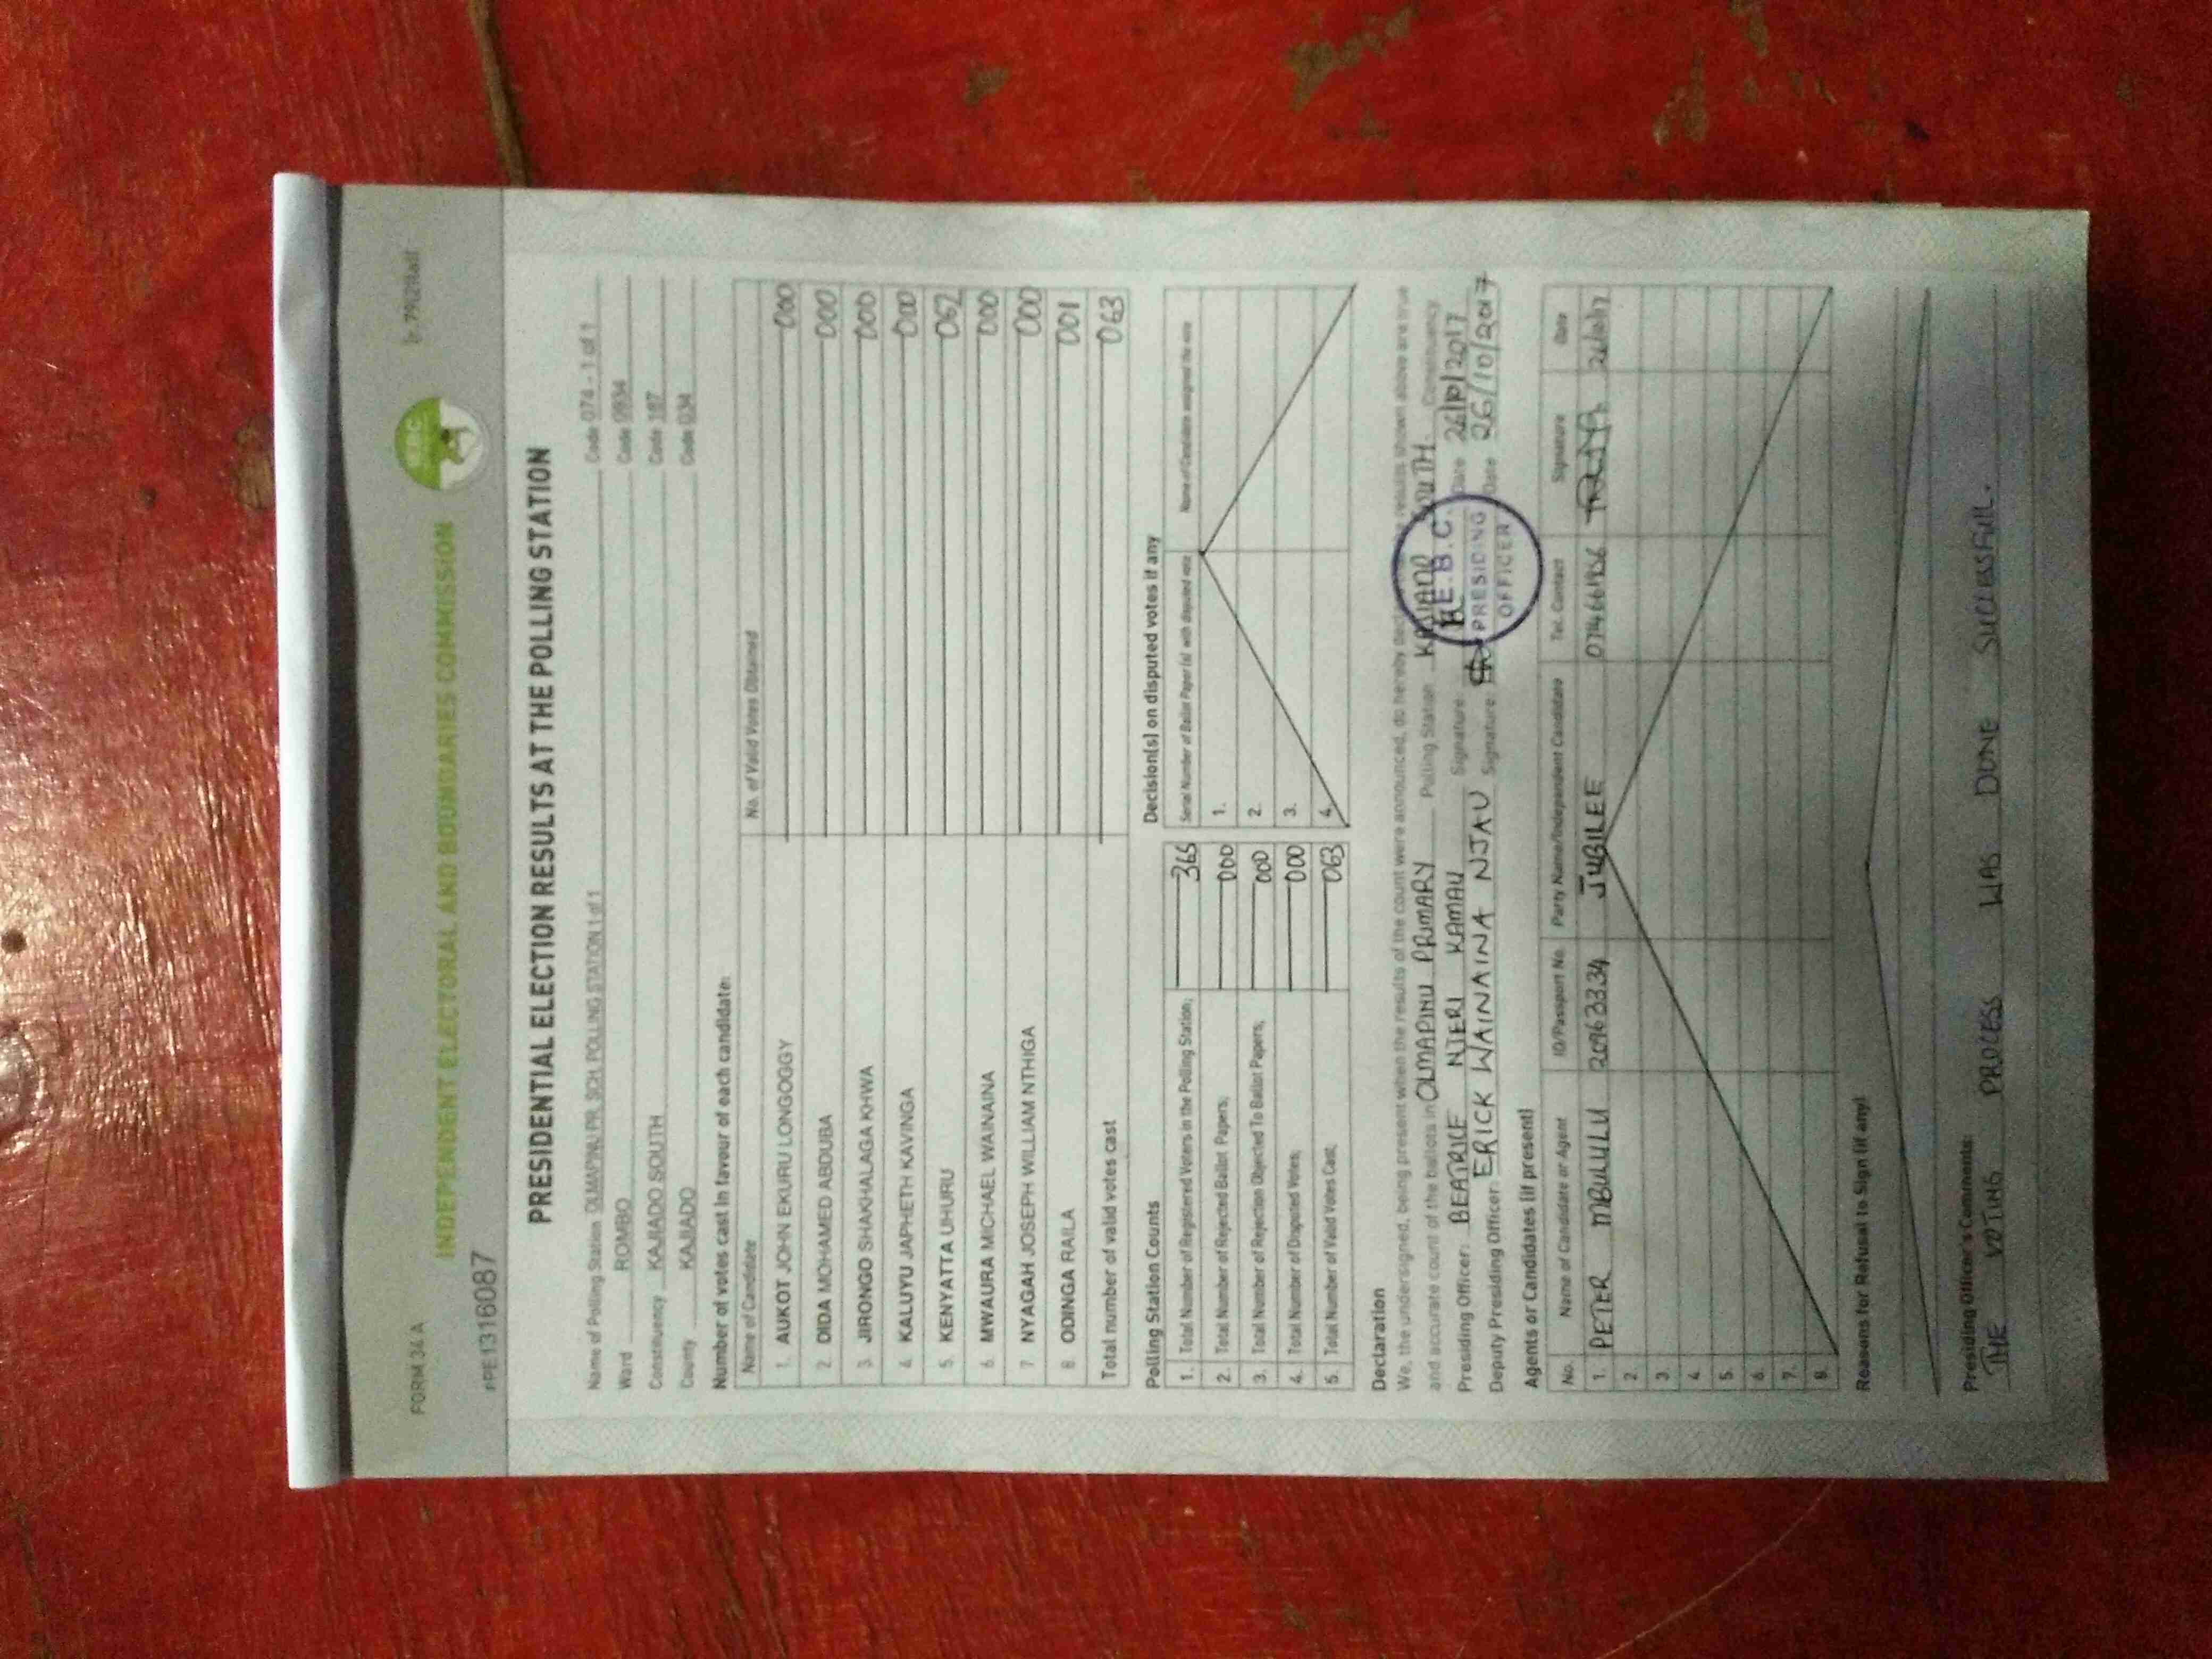 FORM 34 A
INDEPENDENT ELECTORAL AND BOUNDARIES COMMISSION
I.E.B.C
PRESIDENTIAL ELECTION RESULTS AT THE POLLING STATION
Name of Polling Station OLMAPINU PR. SCH. POLLING STATION 1 of 1 Code 074 - 1 of 1
Ward ROMBO Code 0934
Constituency KAJIADO SOUTH Code 187
County KAJIADO Code 034
Number of votes cast in favour of each candidate:
Name of Candidate No. of Valid Votes Obtained
1. AUKOT JOHN EKURU LONGOGGY 000
2. DIDA MOHAMED ABDUBA 000
3. JIRONGO SHAKHALAGA KHWA 000
4. KALUYU JAPHETH KAVINGA 000
5. KENYATTA UHURU 062
6. MWAURA MICHAEL WAINAINA 000
7. NYAGAH JOSEPH WILLIAM NTHIGA 000
8. ODINGA RAILA 001
Total number of valid votes cast 063
Polling Station Counts
1. Total Number of Registered Voters in the Polling Station; 365
2. Total Number of Rejected Ballot Papers; 000
3. Total Number of Rejection Objected To Ballot Papers; 000
4. Total Number of Disputed Votes; 000
5. Total Number of Valid Votes Cast; 063
Decision(s) on disputed votes if any
Serial Number of Ballot Paper (s) with disputed vote Name of Candidate assigned the vote
1.
2.
3.
4.
Declaration
We, the undersigned, being present when the results of the count were announced, do hereby results shown above are true
and accurate count of the ballots in OLMAPINU PRIMARY Polling Station KAJIADO SOUTH. Constituency
Presiding Officer: BEATRICE NJERI KAMAU Signature Date 26/10/2017
Deputy Presiding Officer: ERICK WAINAINA NJAU Signature Date 26/10/2017
I.E.B.C.
PRESIDING
OFFICER
Agents or Candidates (if present)
No. Name of Candidate or Agent ID/Passport No. Party Name/Independent Candidate Tel. Contact Signature Date
1. PETER MBULULU 20963334 JUBILEE
2.
3.
4.
5.
6.
7.
8.
Reasons for Refusal to Sign (if any)
Presiding Officer's Comments:
THE VOTING PROCESS WAS DONE SUCCESSFUL.